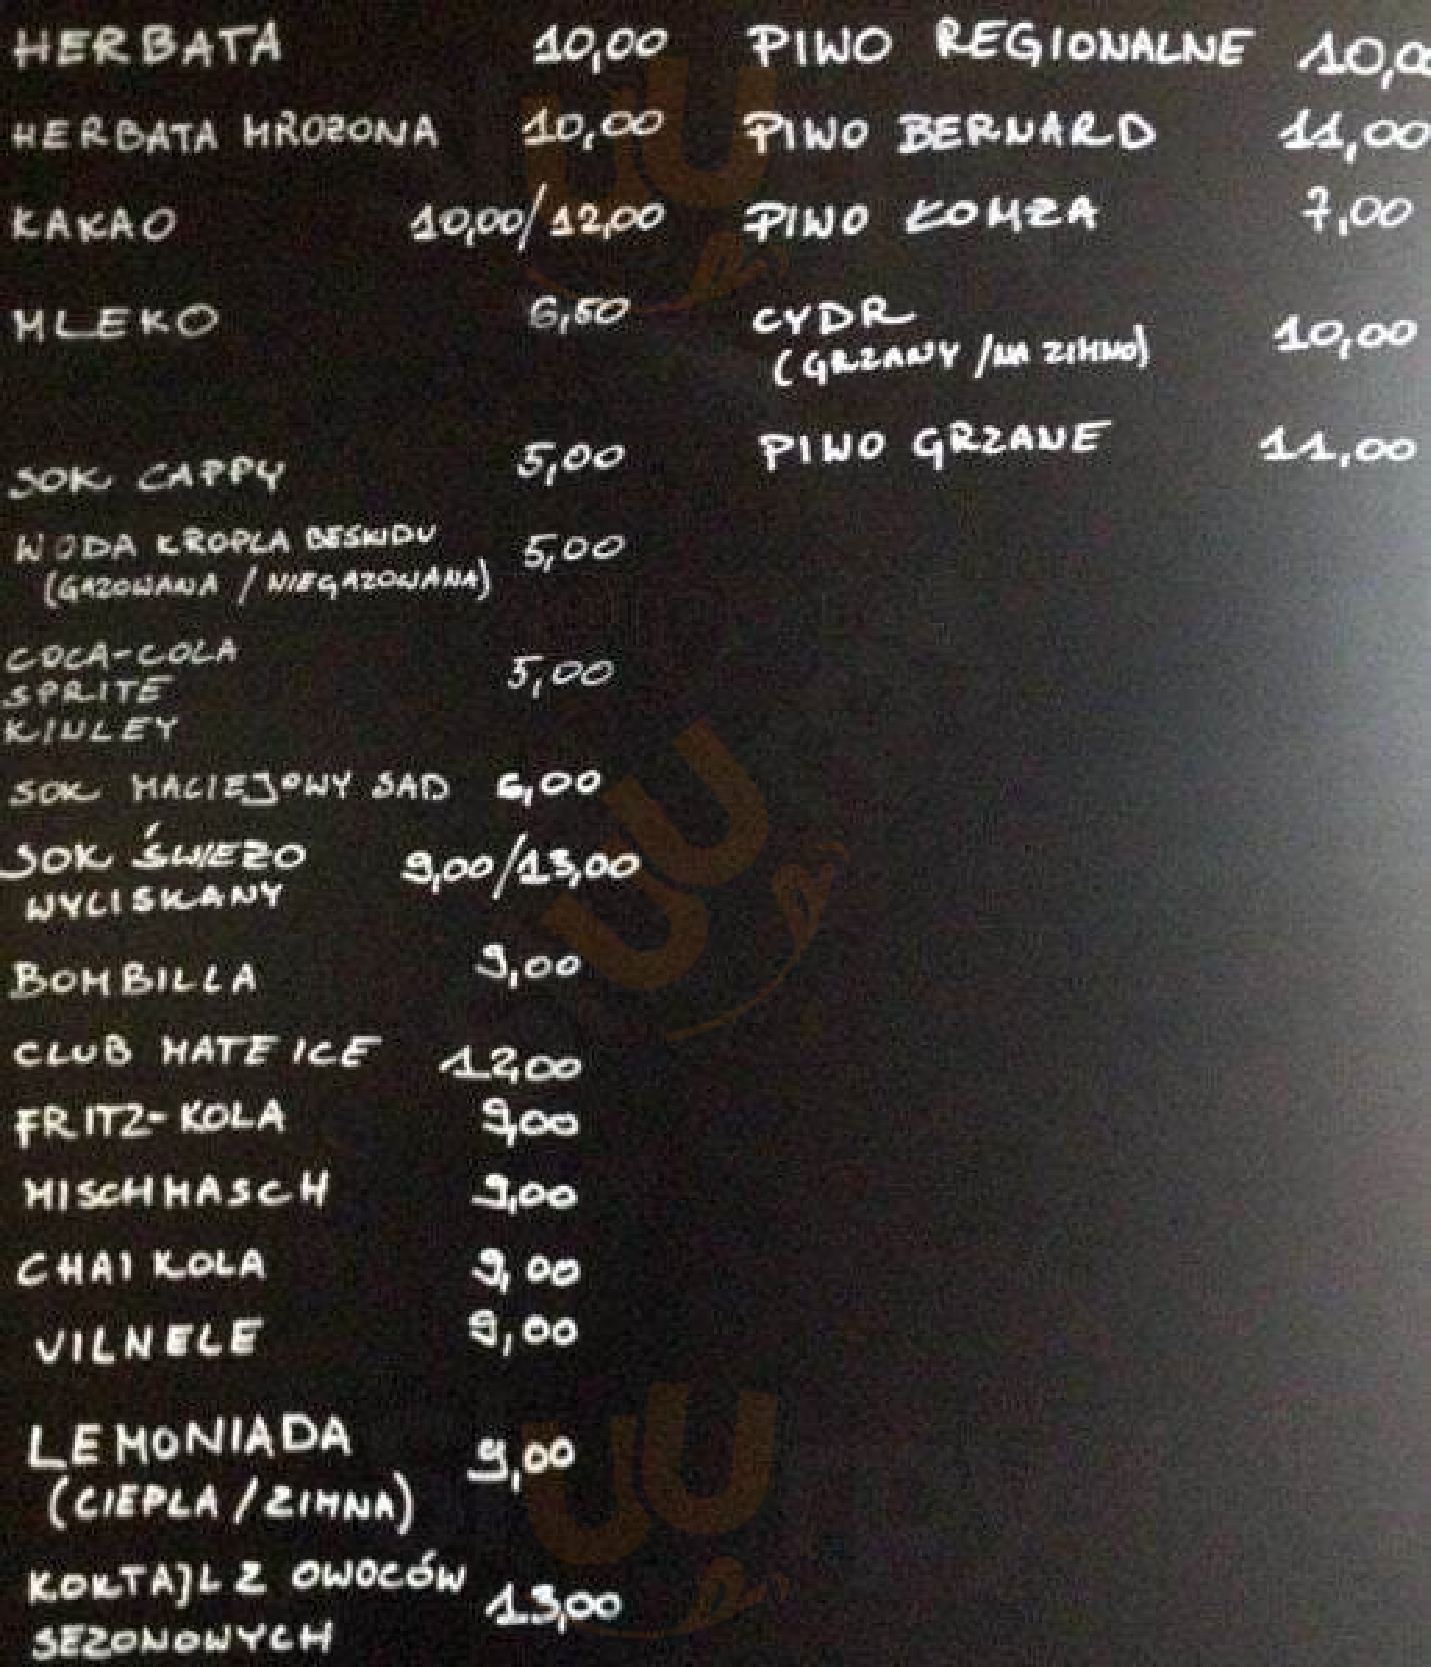 HERBATA 10,00
HERBATA MROŻONA 10,00
KAKAO 10,00/12,00
MLEKO 6,50
SOK CAPPY 5,00
WODA KROPLA BESKIDU 5,00
(GAZOWANA / NIEGAZOWANA)
COCA-COLA
SPRITE 5,00
KINLEY
SOK MACIEJOWY SAD 6,00
SOK ŚWIEŻO 9,00/13,00
WYCISKANY
BOMBILLA 9,00
CLUB MATE ICE 12,00
FRITZ-KOLA 9,00
MISCHMASCH 9,00
CHAI KOLA 9,00
VILNELE 9,00
LEMONIADA 9,00
(CIEPLA / ZIMNA)
KOKTAJL Z OWOCÓW 13,00
SEZONOWYCH
PIWO REGIONALNE 10,00
PIWO BERNARD 11,00
PIWO ŁOMŻA 7,00
CYDR 10,00
(GRZANY / NA ZIMNO)
PIWO GRZANE 11,00